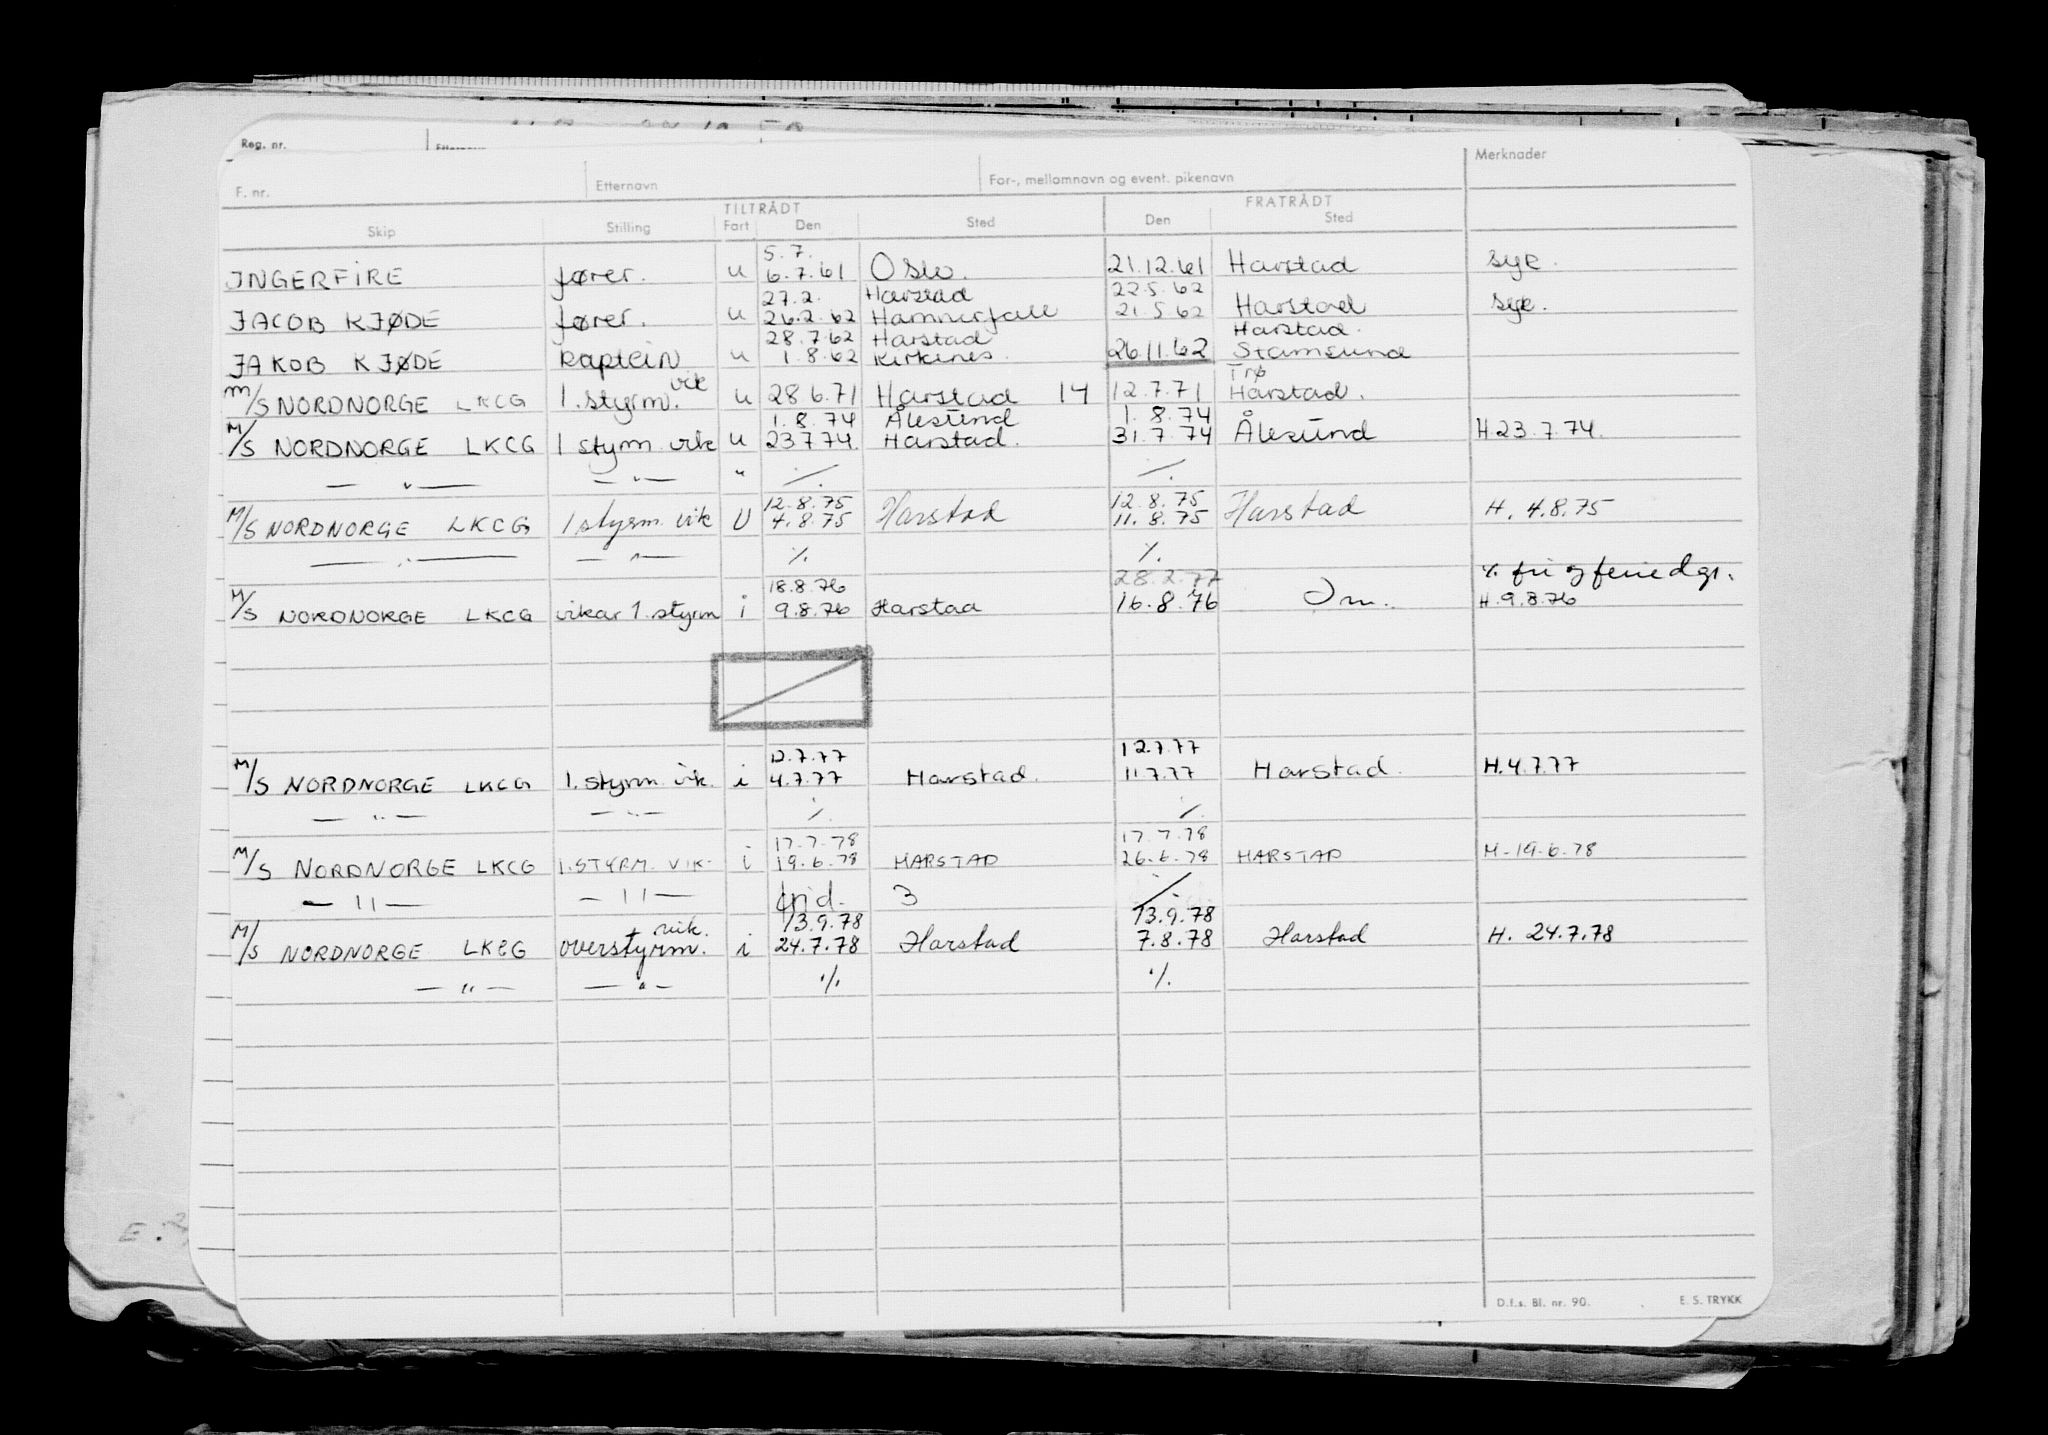 Reg. nr.
F. nr. Etternavn For-, mellomnavn og event. pikenavn Merknader
TILTRÅDT FRATRÅDT
Skip Stilling Fart Den Sted Den Sted
5.7.
INGERFIRE fører. u 6.7.61 Oslo. 21.12.61 Harstad syk.
27.2. Harstad 22.5.62
JACOB KJØDE fører. u 26.2.62 Hammerfest 21.5.62 Harstad syk.
28.7.62 Harstad Harstad.
JAKOB KJØDE kaptein u 1.8.62 Kirkenes. 26.11.62 Stamsund
vik Trø
M/S NORDNORGE LKCG 1. styrm. u 28.6.71 Harstad 14 12.7.71 Harstad.
1.8.74 Ålesund 1.8.74
M/S NORDNORGE LKCG 1 styrm. vik u 23.7.74. Harstad. 31.7.74 Ålesund H.23.7.74.
— " — — " — " ·/. ·/.
12.8.75 12.8.75
M/S NORDNORGE LKCG 1 styrm. vik U 4.8.75 Harstad 11.8.75 Harstad H. 4.8.75
— " — — " — ·/. ·/.
18.8.76 28.2.77 ·/. fri og feriedgr.
M/S NORDNORGE LKCG vikar 1. styrm i 9.8.76 Harstad 16.8.76 H.9.8.76
12.7.77 12.7.77
M/S NORDNORGE LKCG 1. styrm. vik. i 4.7.77 Harstad. 11.7.77 Harstad. H.4.7.77
— " — — " — ·/. ·/.
17.7.78 17.7.78
M/S NORDNORGE LKCG 1. STYRM. VIK. i 19.6.78 HARSTAD 26.6.78 HARSTAD H-19.6.78
— " — — " — frid. 3 ·/.
vik. 13.9.78 13.9.78
M/S NORDNORGE LKCG overstyrm. i 24.7.78 Harstad 7.8.78 Harstad H. 24.7.78
— " — — " — ·/. ·/.
D.f.s. Bl. nr. 90. E. S. TRYKK